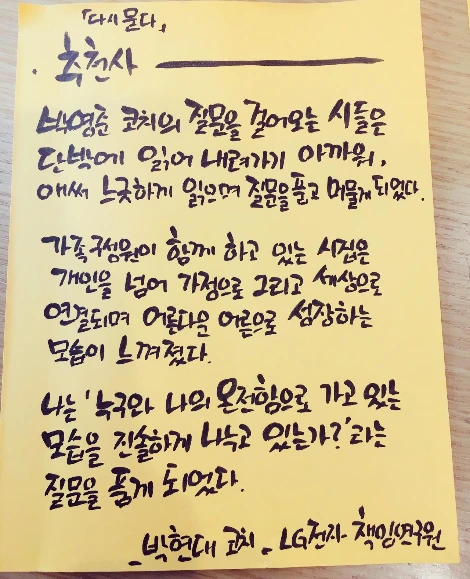 「다시 묻다」
추천사
박영준 코치의 질문을 걸어오는 시들은
단박에 읽어 내려가기 아까워,
애써 느긋하게 읽으며 질문을 품고 머물게 되었다.
가족구성원이 함께 하고 있는 시집은
개인을 넘어 가정으로 그리고 세상으로
연결되며 어른다운 어른으로 성장하는
모습이 느껴졌다.
나는 '누구와 나의 온전함으로 가고 있는
모습을 진솔하게 나누고 있는가?'라는
질문을 품게 되었다.
_박현대 코치_ LG전자 책임연구원